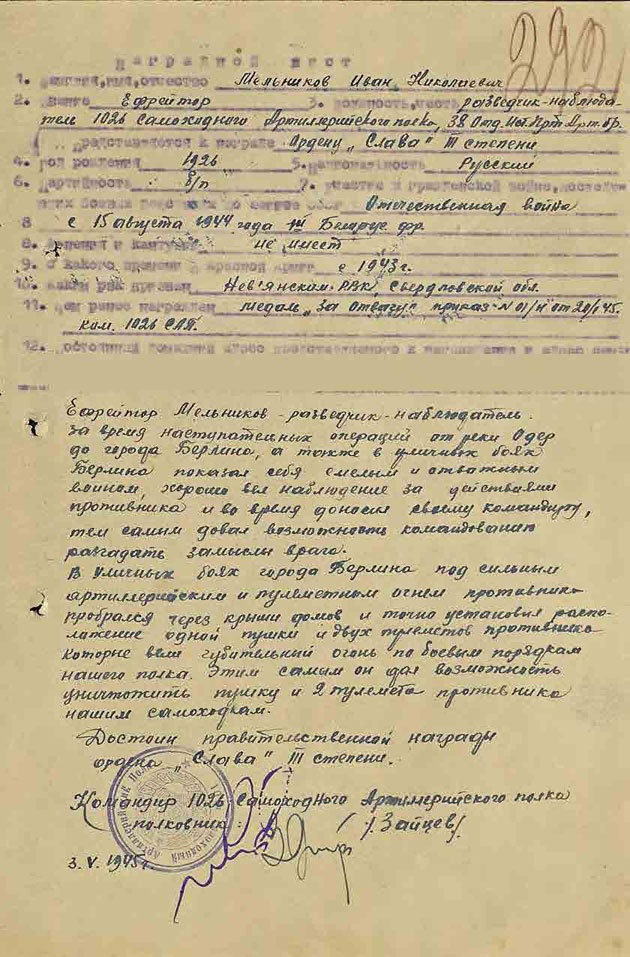 292
Наградной лист
1. фамилия, имя, отчество Мельников Иван Николаевич
2. Звание Ефрейтор 3. должность, часть разведчик-наблюда-
тель 1026 Самоходного Артиллерийского полка, 38 Отд. Ист. Прт. Арт. бр.
представляется к награде Ордену „Слава" III степени
4. год рождения 1926 5. национальность Русский
6. Партийность б/п 7. участие в гражданской войне, последующих
боевых Отечественная война
8 с 15 августа 1944 года 1й Белорус фр.
8. ранения и контузии не имеет
9. с какого времени в Красной армии с 1943 г.
10. каким РВК призван Нев'янским РВК, Свердловской обл.
11. чем ранее награжден медаль „За отвагу" приказ N 01/н от 20/I 45.
ком. 1026 САП.
12.
Ефрейтор Мельников - разведчик-наблюдатель.
За время наступательных операций от реки Одер
до города Берлина, а также в уличных боях
Берлина показал себя смелым и отважным
воином, хорошо вел наблюдение за действиями
противника и во время доносил своему командиру,
тем самым довал возможность командованию
разгадать замыслы врага.
В уличных боях города Берлина под сильным
артиллерийским и пулеметным огнем противника
пробрался через крыши домов и точно установил распо-
ложение одной пушки и двух пулеметов противника
которые вели губительный огонь по боевым порядкам
нашего полка. Этим самым он дал возможность
уничтожить пушку и 2 пулемета противника
нашим самоходкам.
Достоин правительственной награды
ордена „Слава" III степени.
Командир 1026 Самоходного Артиллерийского полка
полковник: /Зайцев/
3.V.1945г.